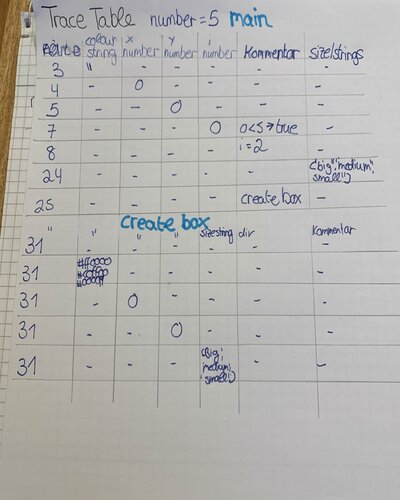 Trace Table number=5 main
colour x y i
string number number number Kommentar size/strings
3 " - - - - -
4 - 0 - - - -
5 - - 0 - - -
7 - - - 0 0<5→true -
8 - - - - i=2 -
24 - - - - - ("big","medium","small")
25 - - - - create box -
create box
" " " " sizestring dir Kommentar
31 - - - - - -
31 #ff0000 - - - - -
#00ff00
#0000ff
31 - 0 - - - -
31 - - 0 - - -
31 - - - (big, - -
medium,
small)